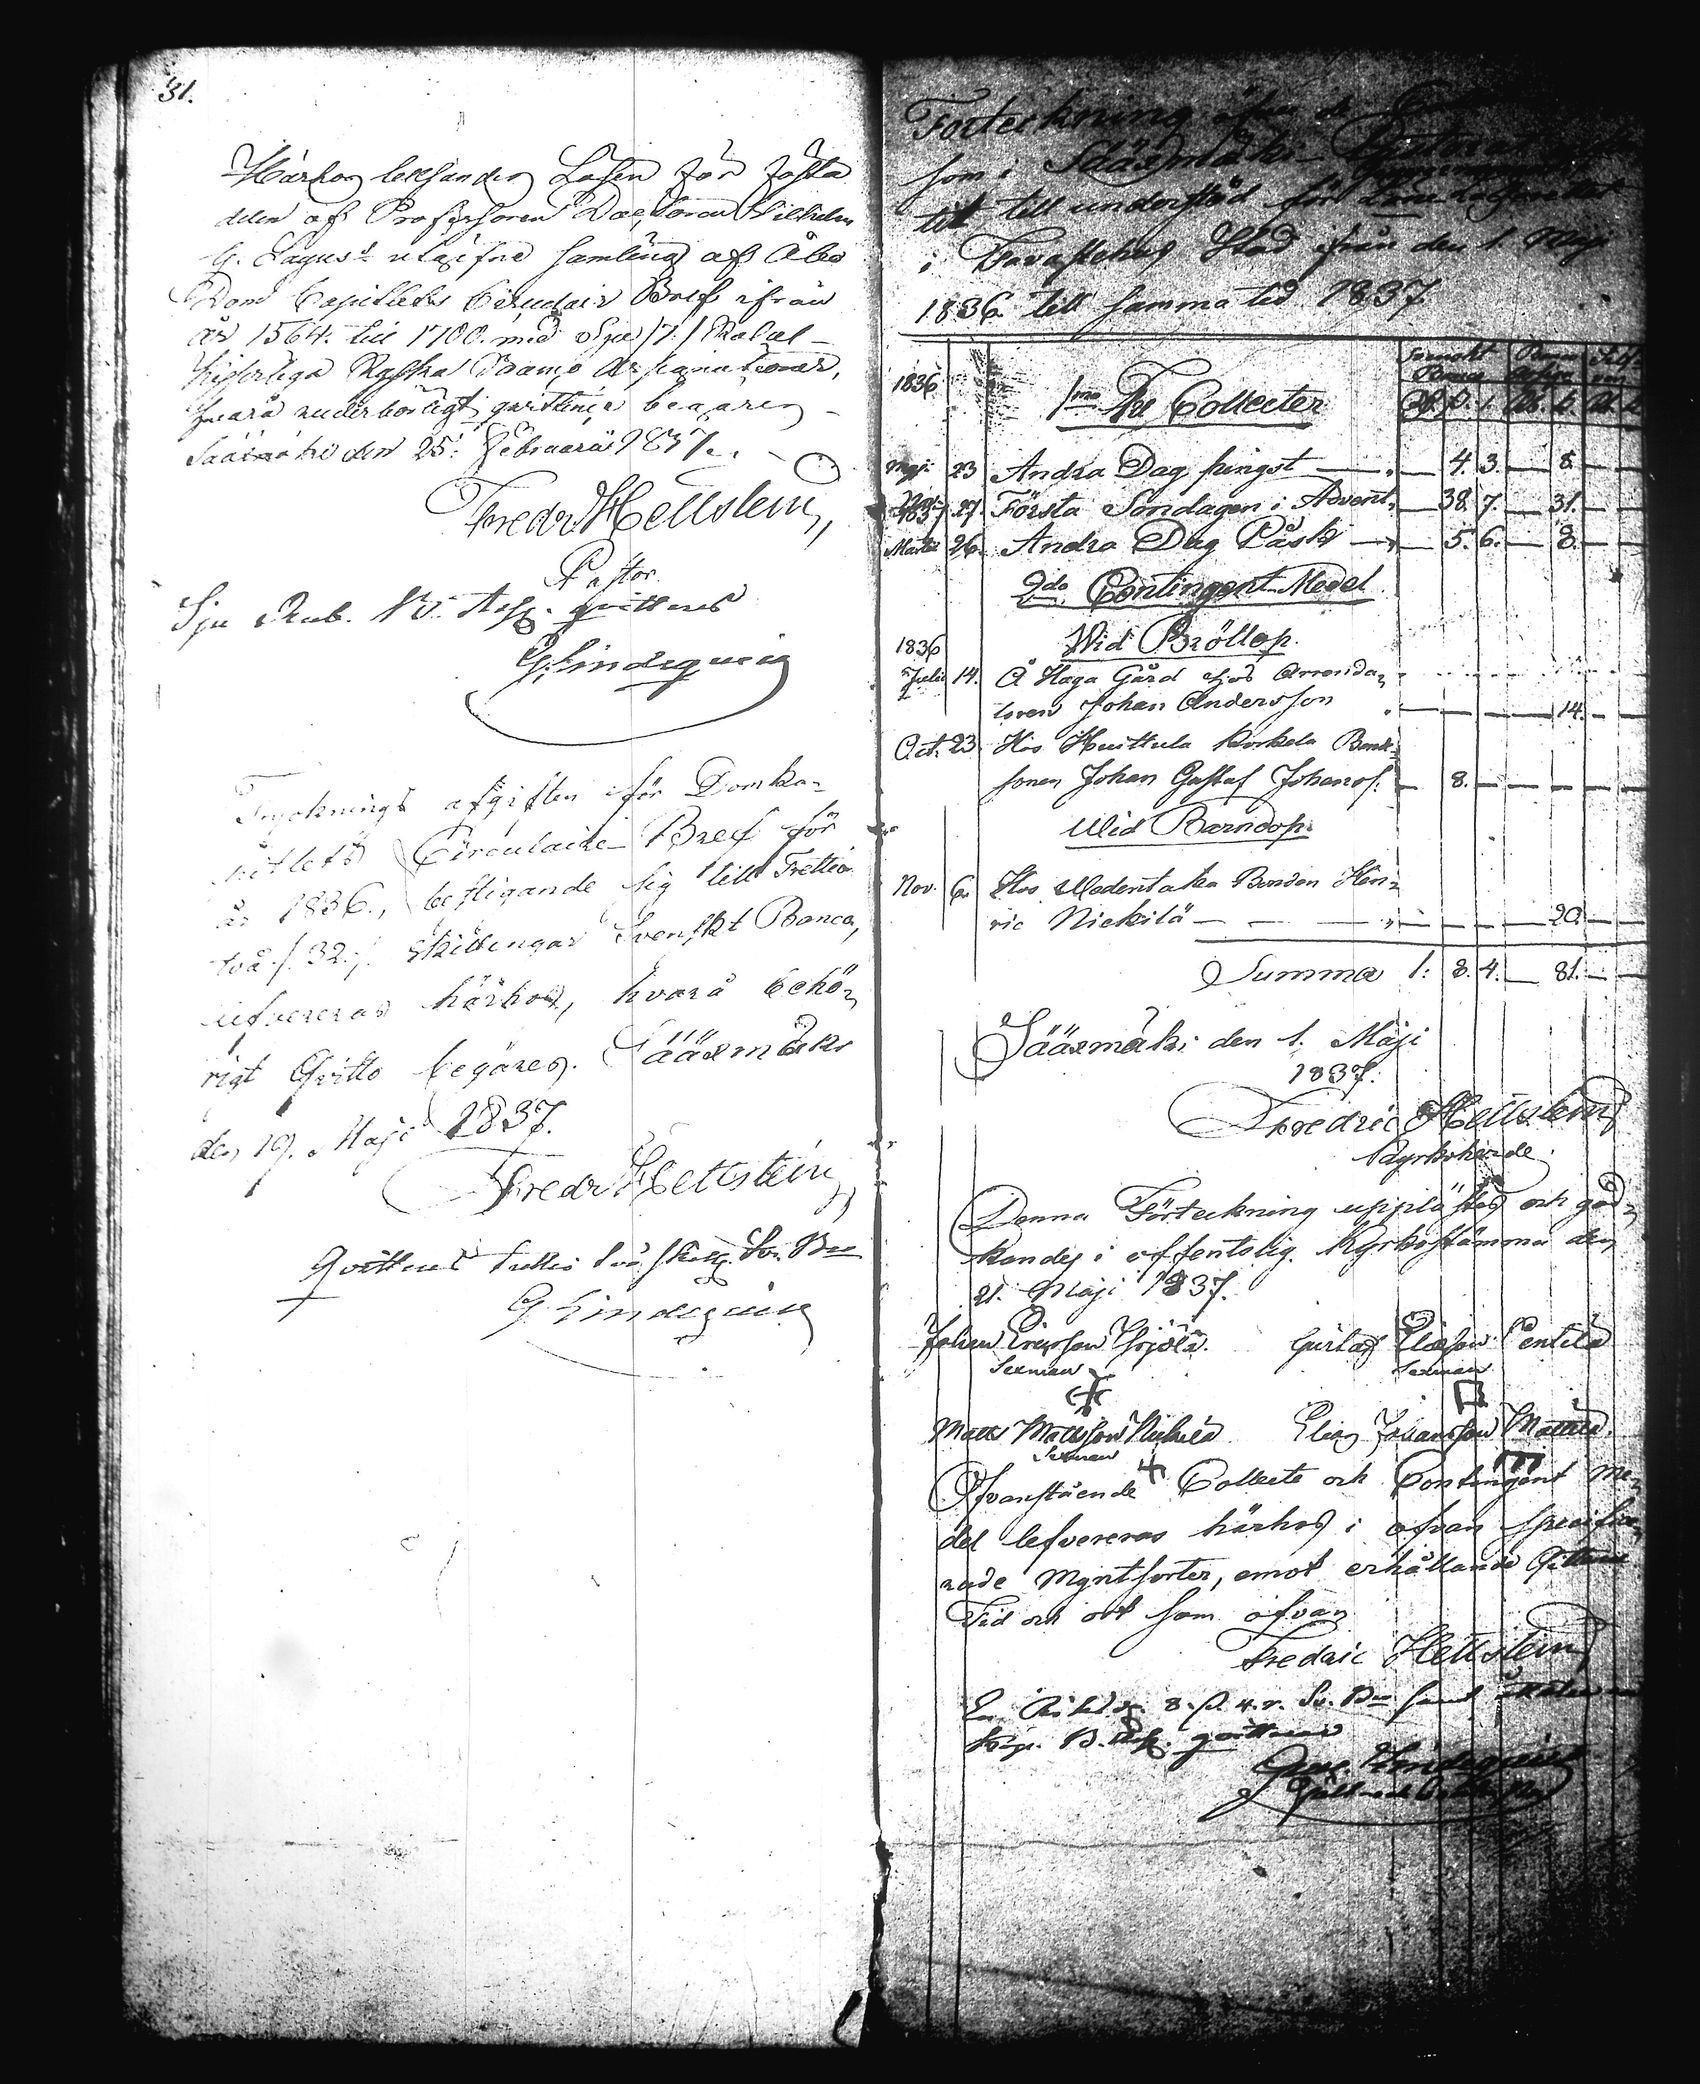 31.
Härhos tillsändes Lösen för första
delen af Professoren Doctoren Wilhelm
G. Lagus's utgifne samling af Åbo
Dom Capitlets Circulair Bref ifrån
år 1564. till 1700. med Sju /7./ Rubel
Kejserliga Ryska Banco Assignationer,
hvarå Säärmäki den 25: Februarii 1837.
Fredr. Hellstein,
Pastor.
Sju Rub. B. Assg. qvitteras
G. Lindequist
Tryckningsafgiften för Domka-
pitlets Circulaire Bref för
år 1836., bestigande sig till Trettio
två /.32./ skillingar Svenskt Banco,
lefvereras härhos, hvarå behö-
rigt Qvitto begäres. Sääxmäki
den 19. Maji 1837.
Fredr. Hellstein
Qvitteras trettio två skill. Sv. Bco
G. Lindequist
Förteckning öfver de
som i Sääxmäki
till understöd för
i Tavastehus Stad ifrån den 1. Maji
1836. till samma tid 1837.
1836
1mo För Collecter
Svenskt Banco
Maji 23 Andra Dag Pingst — 4. 3. — 8.
Nov. 27. Första Söndagen i Advent — 38. 7. — 31.
1837
Martii 26. Andra Dag Påsk — 5. 6. — 8.
2do Contingent-Medel
1836
Wid Bröllop.
Julii 14. Å Haga Gård hos Arrenda-
toren Johan Andersson — 14.
Oct. 23. Hos Huittula Korkela Bonde-
sonen Johan Gustaf Johanss. — 8.
Wid Barndop.
Nov. 6. Hos Uedentaka Bonden Hen-
ric Nickilä — 20.
Summa 1: 8. 4. — 81.
Sääxmäki den 1. Maji
1837.
Fredric Hellstein
Kyrkoherde.
Denna Förteckning upplästes och god-
kändes i offentelig Kyrkostämma den
21. Maji 1837.
Johan Ericsson
Sexman
Gustaf Eliæson Pentilä
Sexman
Matts Mattsson
Sexman
Elias Johansson Mattila.
Ofvanstående Collecte och Contingent Me-
del lefvereras härhos i ofvan specifice-
rade Myntsorter, emot erhållande Qvittens
Tid och ort som ofvan
Fredric Hellstein
En Riksd. 8. s. 4. r. Sv. Bco samt
Kop. B. Assg. qvitteras
Lindequist